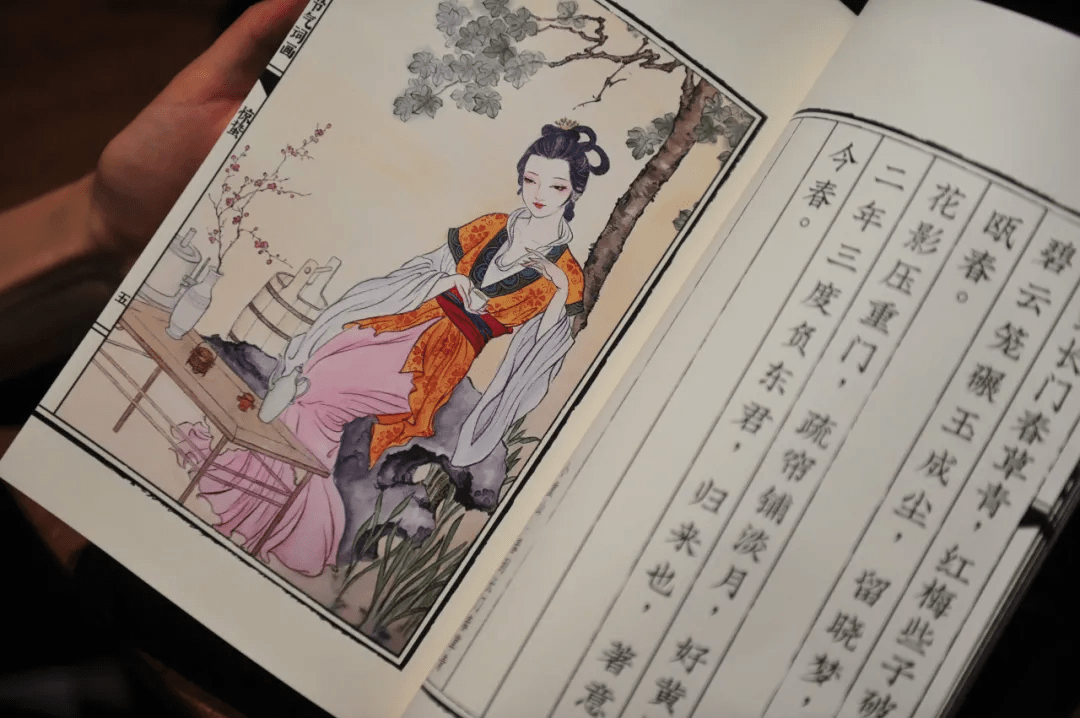 节气词画
惊蛰
五
长门春草青，红梅些子破
碧云笼碾玉成尘，留晓梦，
瓯春。
花影压重门，疏帘铺淡月，好黄
二年三度负东君，归来也，著意
今春。